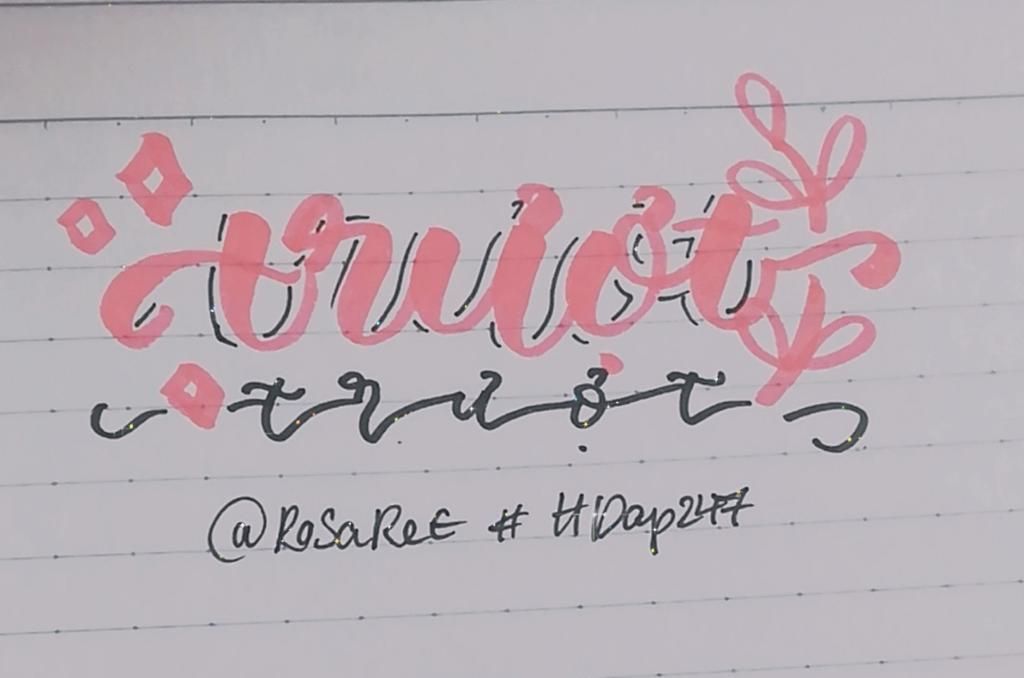 trượt
trượt
@RoSaReE # HDap247